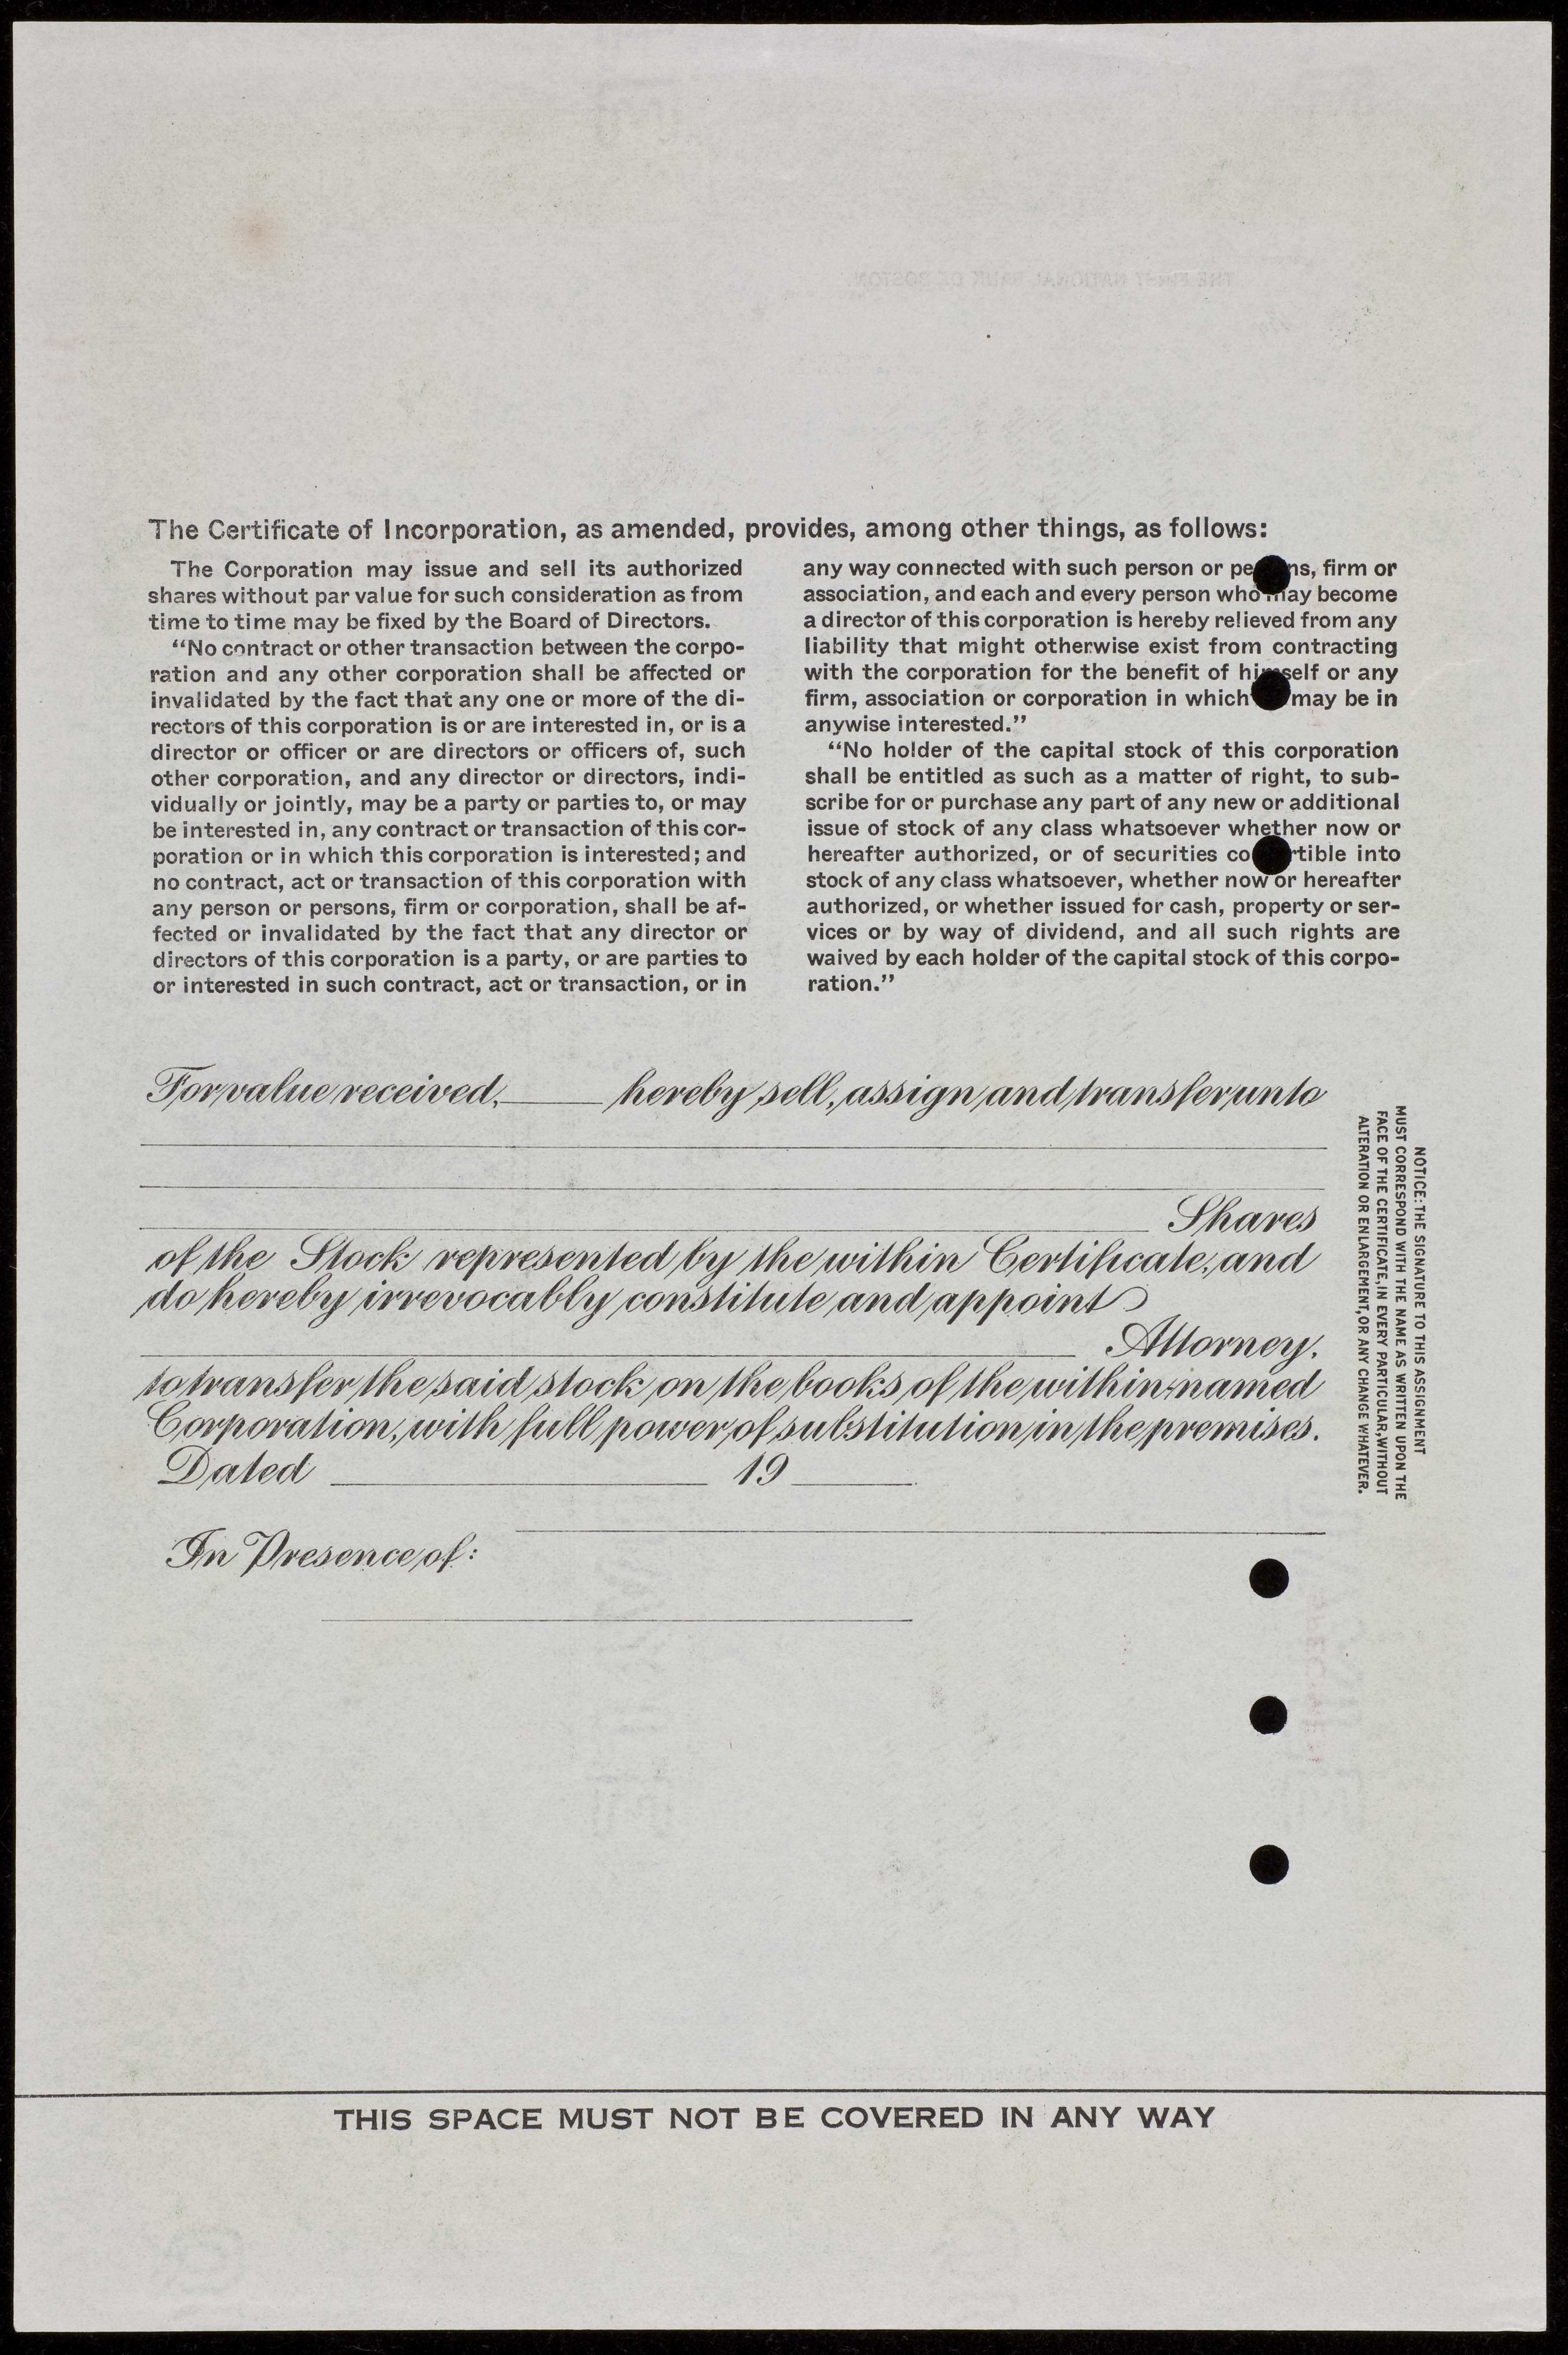 The Certificate of Incorporation, as amended, provides, among other things, as follows:
The Corporation may issue and sell its authorized
shares without par value for such consideration as from
time to time may be fixed by the Board of Directors.
“No contract or other transaction between the corpo-
ration and any other corporation shall be affected or
invalidated by the fact that any one or more of the di-
rectors of this corporation is or are interested in, or is a
director or officer or are directors or officers of, such
other corporation, and any director or directors, indi-
vidually or jointly, may be a party or parties to, or may
be interested in, any contract or transaction of this cor-
poration or in which this corporation is interested; and
no contract, act or transaction of this corporation with
any person or persons, firm or corporation, shall be af-
fected or invalidated by the fact that any director or
directors of this corporation is a party, or are parties to
or interested in such contract, act or transaction, or in
any way connected with such person or pe ns, firm or
association, and each and every person who may become
a director of this corporation is hereby relieved from any
liability that might otherwise exist from contracting
with the corporation for the benefit of himself or any
firm, association or corporation in which may be in
anywise interested.”
“No holder of the capital stock of this corporation
shall be entitled as such as a matter of right, to sub-
scribe for or purchase any part of any new or additional
issue of stock of any class whatsoever whether now or
hereafter authorized, or of securities co rtible into
stock of any class whatsoever, whether now or hereafter
authorized, or whether issued for cash, property or ser-
vices or by way of dividend, and all such rights are
waived by each holder of the capital stock of this corpo-
ration.”
For value received, hereby sell, assign and transfer unto
Shares
of the Stock represented by the within Certificate, and
do hereby irrevocably constitute and appoint
Attorney,
to transfer the said stock on the books of the within-named
Corporation, with full power of substitution in the premises.
Dated 19
In Presence of:
NOTICE: THE SIGNATURE TO THIS ASSIGNMENT
MUST CORRESPOND WITH THE NAME AS WRITTEN UPON THE
FACE OF THE CERTIFICATE, IN EVERY PARTICULAR, WITHOUT
ALTERATION OR ENLARGEMENT, OR ANY CHANGE WHATEVER.
THIS SPACE MUST NOT BE COVERED IN ANY WAY